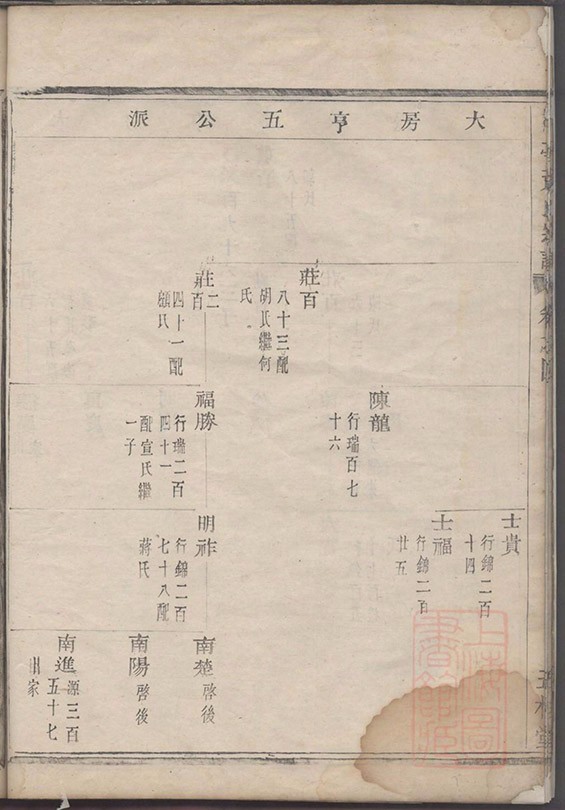 大房亨五公派
士貴
行錦二百
十四
士福
行錦二百
廿五
陳龍
行瑞百七
十六
莊百
八十三配
胡氏繼何
氏
莊二
百
四十一配
顧氏
福勝
行瑞二百
四十一
配宣氏繼
一子
明祚
行錦二百
七十八配
蔣氏
南楚
啓後
南陽
啓後
南進
源三百
五十七
出家
上海圖
書館藏